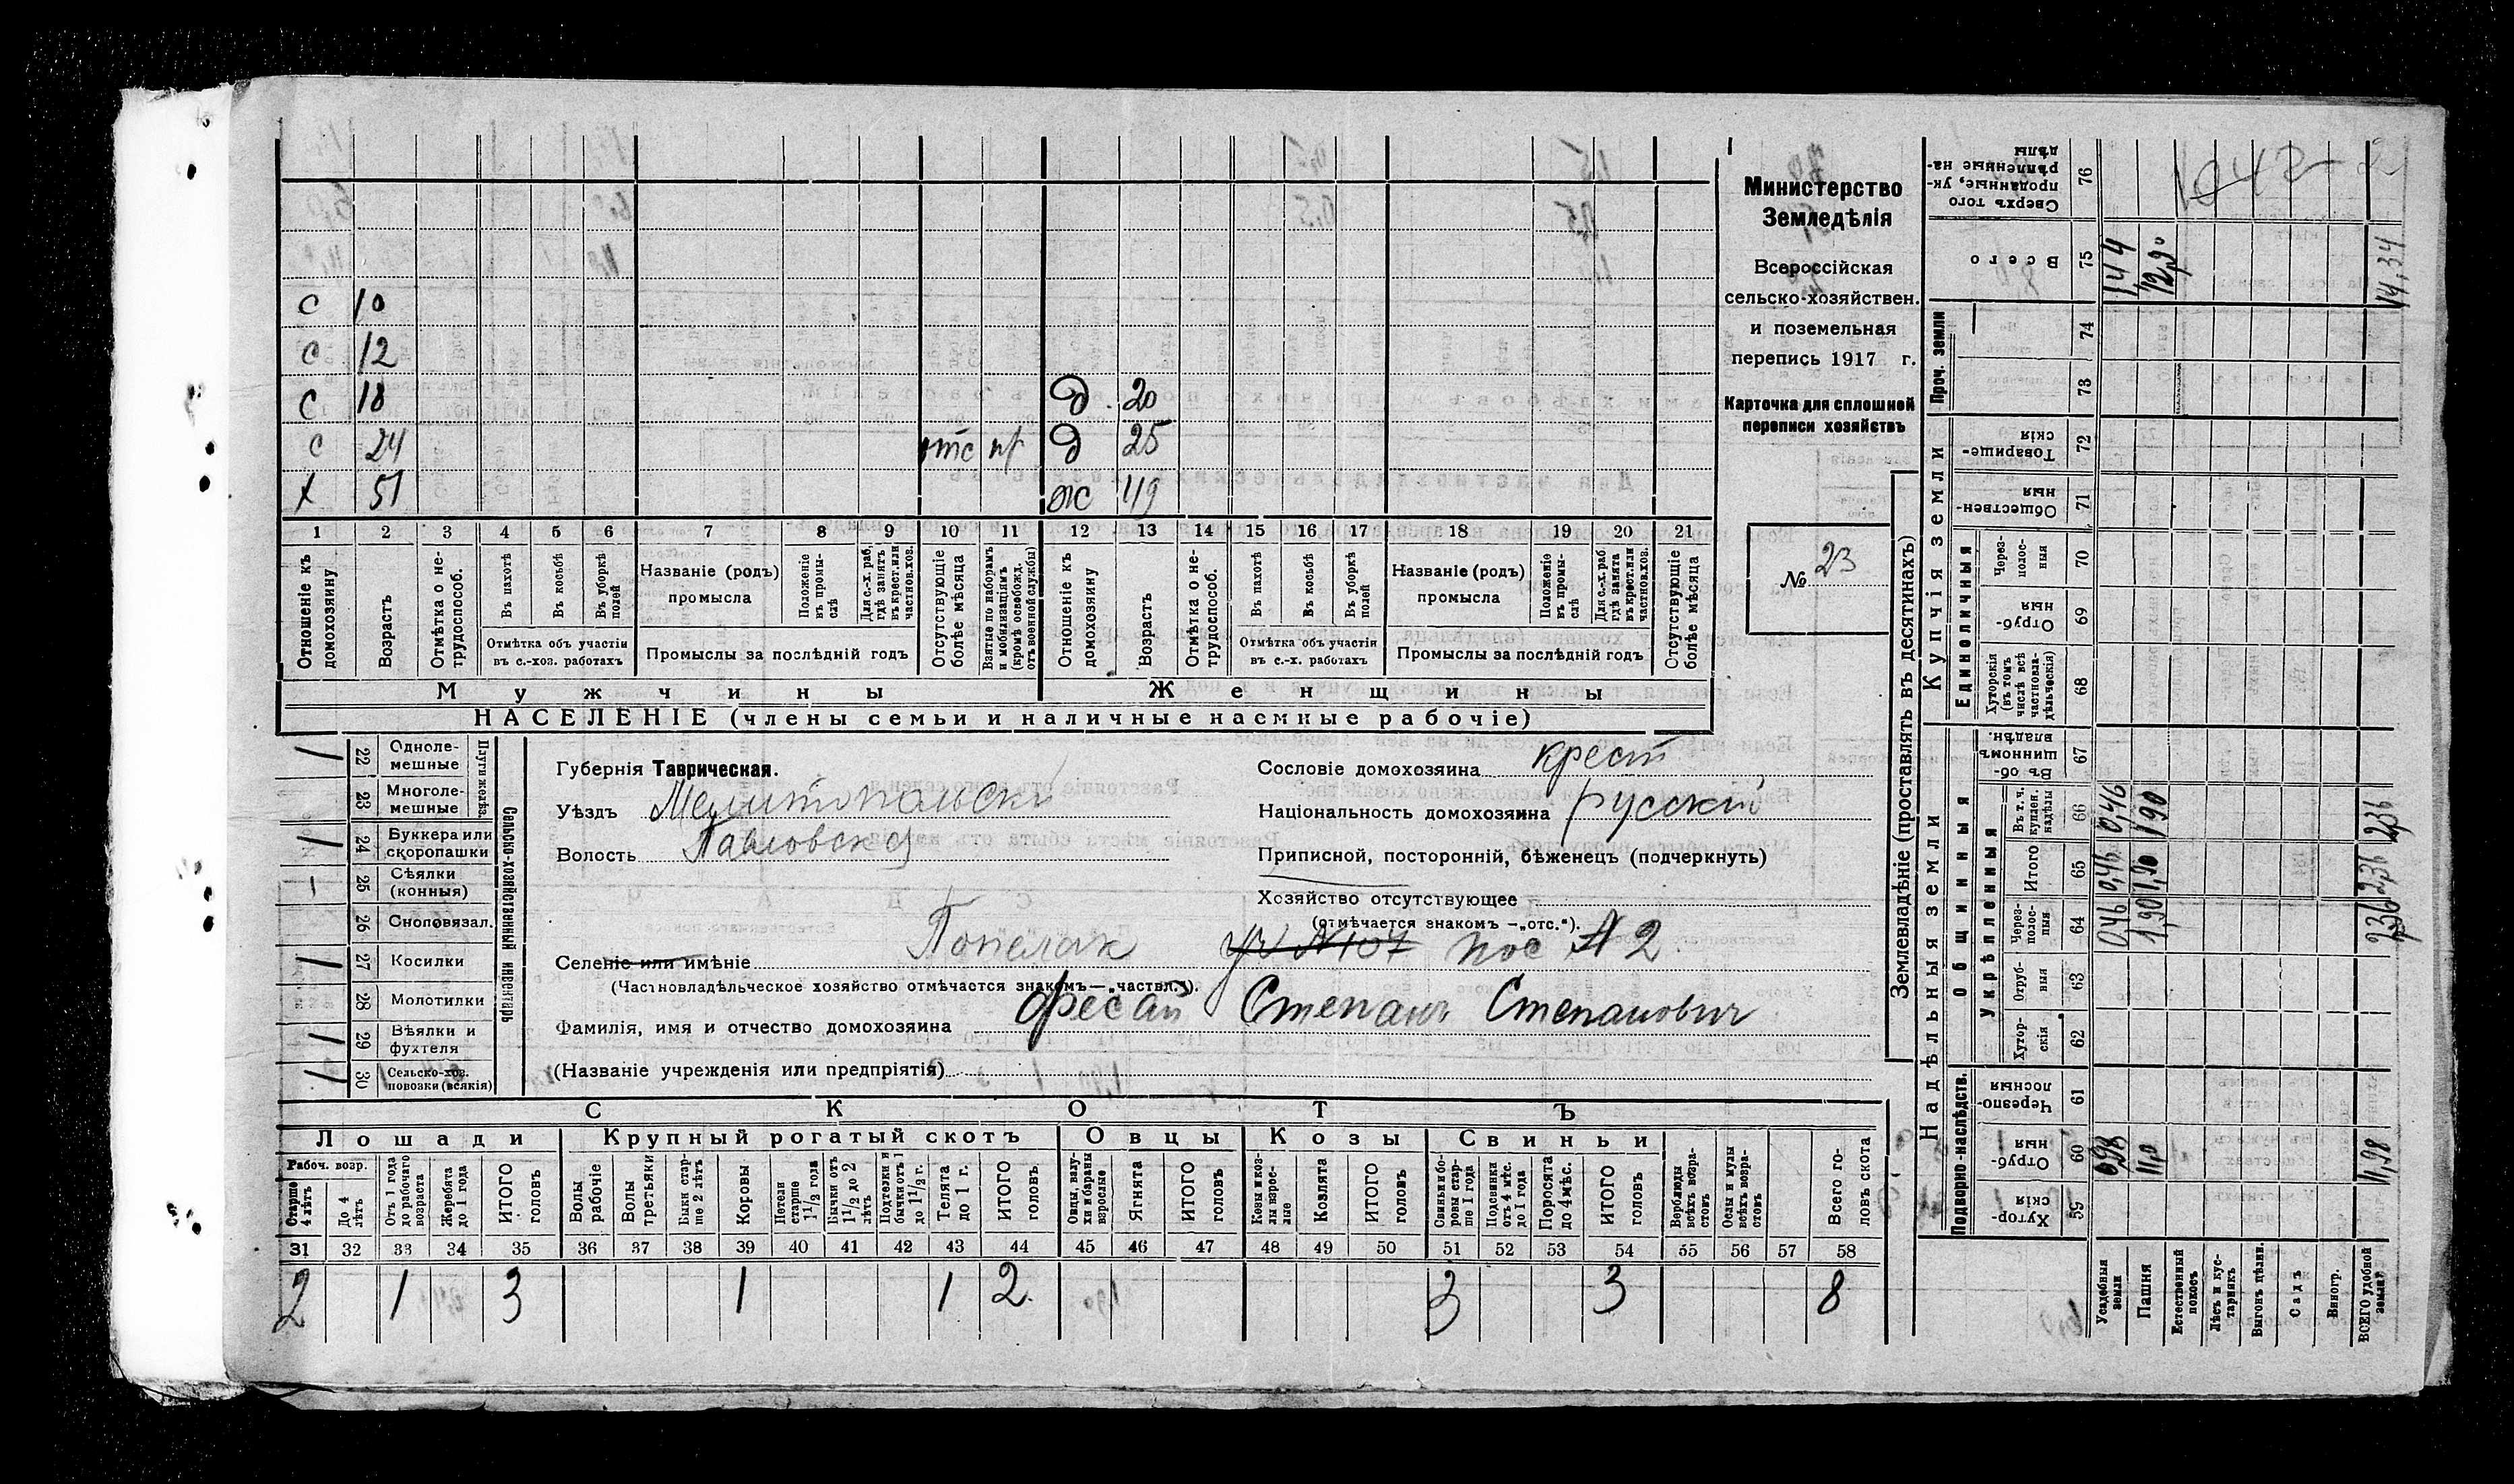 Министерство
Земледѣлія
Всероссійская
сельско-хозяйствен.
и поземельная
перепись 1917 г.
Карточка для сплошной
переписи хозяйствъ
№ 23
с 10
с 12
с 18 д. 20
с 24 отс пр д 25
х 51 ж 49
1 2 3 4 5 6 7 8 9 10 11 12 13 14 15 16 17 18 19 20 21
Отношеніе къ домохозяину
Возрастъ
Отмѣтка о не-трудоспособ.
Въ пахотѣ
Въ косьбѣ
Въ уборкѣ полей
Отмѣтка объ участіи въ с.-хоз. работахъ
Названіе (родъ) промысла
Положеніе въ промы-слѣ
Для с.-х. раб. гдѣ занятъ въ крест. или частнов. хоз.
Промыслы за послѣдній годъ
Отсутствующіе болѣе мѣсяца
Взятые по наборамъ и мобилизаціямъ (кромѣ освобожд. отъ военной службы)
Отношеніе къ домохозяину
Возрастъ
Отмѣтка о не-трудоспособ.
Въ пахотѣ
Въ косьбѣ
Въ уборкѣ полей
Отмѣтка объ участіи въ с.-х. работахъ
Названіе (родъ) промысла
Положеніе въ промы-слѣ
Для с.-х. раб. гдѣ занята въ крест. или частнов. хоз.
Промыслы за послѣдній годъ
Отсутствующіе болѣе мѣсяца
Мужчины Женщины
НАСЕЛЕНІЕ (члены семьи и наличные наемные рабочіе)
Сельско-хозяйственный инвентарь
Плуги желѣз.
1 22 Одноле-мешные
23 Многоле-мешные
1 24 Буккера или скоропашки
1 25 Сѣялки (конныя)
26 Сноповязал.
1 27 Косилки
28 Молотилки
1 29 Вѣялки и фухтеля
1 30 Сельско-хоз. повозки (всякія)
Губернія Таврическая.
Уѣздъ Мелитопольскі
Волость Павловская
Сословіе домохозяина крест
Національность домохозяина русскій
Приписной, посторонній, бѣженецъ (подчеркнуть)
Хозяйство отсутствующее
(отмѣчается знакомъ —„отс.“).
Селеніе или имѣніе Попелак уч №107 пос №2
(Частновладѣльческое хозяйство отмѣчается знакомъ—„частвл.“).
Фамилія, имя и отчество домохозяина Фесай Степанъ Степановичъ
(Названіе учрежденія или предпріятія)
СКОТЪ
Лошади Крупный рогатый скотъ Овцы Козы Свиньи
Рабоч. возр.
Старше 4 лѣтъ
До 4 лѣтъ
Отъ 1 года до рабочаго возраста
Жеребята до 1 года
ИТОГО головъ
Волы рабочіе
Волы третьяки
Быки стар-ше 2 лѣтъ
Коровы
Нетели старше 1½ года
Бычки отъ 1½ до 2 лѣтъ
Подтелки и бычки отъ 1 до 1½ г.
Телята до 1 г.
ИТОГО головъ
Овцы, валу-хи и бараны взрослые
Ягнята
ИТОГО головъ
Козы и коз-лы взрос-лые
Козлята
ИТОГО головъ
Свиньи и бо-ровы стар-ше 1 года
Подсвинки отъ 4 мѣс. до 1 года
Поросята до 4 мѣс.
ИТОГО головъ
Верблюды всѣхъ возра-стовъ
Ослы и мулы всѣхъ возра-стовъ
Всего го-ловъ скота
31 32 33 34 35 36 37 38 39 40 41 42 43 44 45 46 47 48 49 50 51 52 53 54 55 56 57 58
2 1 3 1 1 2 3 3 8
Землевладѣніе (проставлять въ десятинахъ)
Купчія земли
Надѣльныя земли
Сверхъ того проданные, ук-рѣпленные на-дѣлы 76
Всего 75 1,44 12,90 14,34
Проч. земли 74
73
Товарище-скія 72
Обществен-ныя 71
Единоличныя
Через-полос-ныя 70
Отруб-ныя 69
Хуторскія (въ томъ числѣ всѣ частновла-дѣльческія) 68
Общинныя
Въ об-щинномъ владѣн. 67
Укрѣпленныя
Въ т. ч. куплен. надѣлы 66 0,46 1,90 2,36
Итого 65 0,46 1,90 2,36
Через-полос-ныя 64 0,46 1,90 2,36
Отруб-ныя 63
Хутор-скія 62
Подворно-наслѣдств.
Черезпо-лосныя 61
Отруб-ныя 60 0,98 11,0 11,98
Хутор-скія 59
Усадебныя земли
Пашня
Естественный покосъ
Лѣсъ и кус-тарникъ
Выгонъ цѣлин.
Садъ
Виногр.
ВСЕГО удобной земли